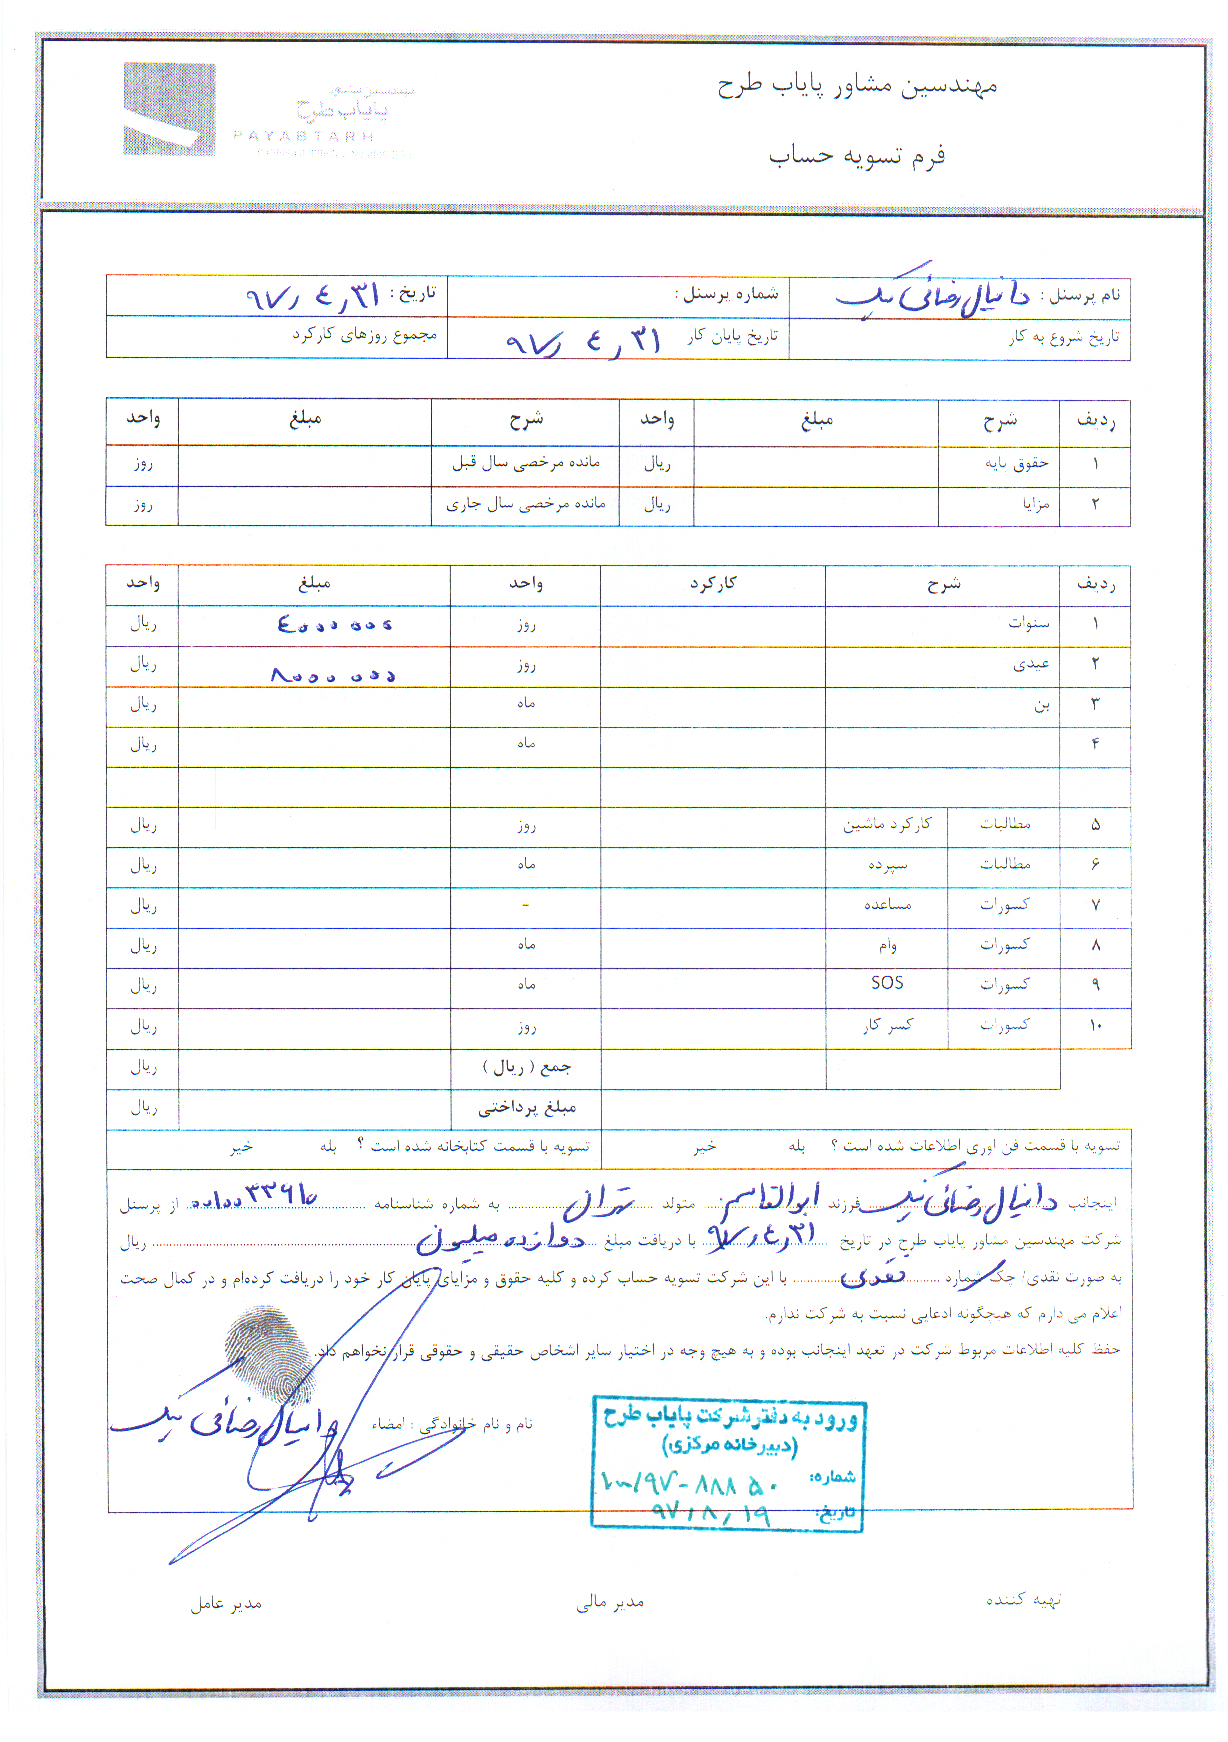 مهندسین مشاور پایاب طرح
فرم تسویه حساب
پایاب طرح
PAYABTARH
نام پرسنل : دانیال رضائی نیک
شماره پرسنل :
تاریخ : ۹۷٫۴٫۳۱
تاریخ شروع به کار
تاریخ پایان کار ۹۷٫۴٫۳۱
مجموع روزهای کارکرد
ردیف شرح مبلغ واحد شرح مبلغ واحد
۱ حقوق پایه ریال مانده مرخصی سال قبل روز
۲ مزایا ریال مانده مرخصی سال جاری روز
ردیف شرح کارکرد واحد مبلغ واحد
۱ سنوات روز ۴۰۰۰۰۰۰ ریال
۲ عیدی روز ۸۰۰۰۰۰۰ ریال
۳ بن ماه ریال
۴ ماه ریال
۵ مطالبات کارکرد ماشین روز ریال
۶ مطالبات سپرده ماه ریال
۷ کسورات مساعده - ریال
۸ کسورات وام ماه ریال
۹ کسورات SOS ماه ریال
۱۰ کسورات کسر کار روز ریال
جمع ( ریال ) ریال
مبلغ پرداختی ریال
تسویه با قسمت فن اوری اطلاعات شده است ؟ بله خیر
تسویه با قسمت کتابخانه شده است ؟ بله خیر
اینجانب دانیال رضائی نیک فرزند ابوالقاسم متولد تهران به شماره شناسنامه از پرسنل
شرکت مهندسین مشاور پایاب طرح در تاریخ ۹۷٫۴٫۳۱ با دریافت مبلغ دوازده میلیون ریال
به صورت نقدی/ چک شماره نقدی با این شرکت تسویه حساب کرده و کلیه حقوق و مزایای پایان کار خود را دریافت کرده‌ام و در کمال صحت
اعلام می دارم که هیچگونه ادعایی نسبت به شرکت ندارم.
حفظ کلیه اطلاعات مربوط شرکت در تعهد اینجانب بوده و به هیچ وجه در اختیار سایر اشخاص حقیقی و حقوقی قرار نخواهم داد.
نام و نام خانوادگی : امضاء دانیال رضائی نیک
ورود به دفتر شرکت پایاب طرح
(دبیرخانه مرکزی)
شماره: ۱۰۰/۹۷-۸۸۸۵۰
تاریخ: ۹۷٫۸٫۱۹
تهیه کننده
مدیر مالی
مدیر عامل